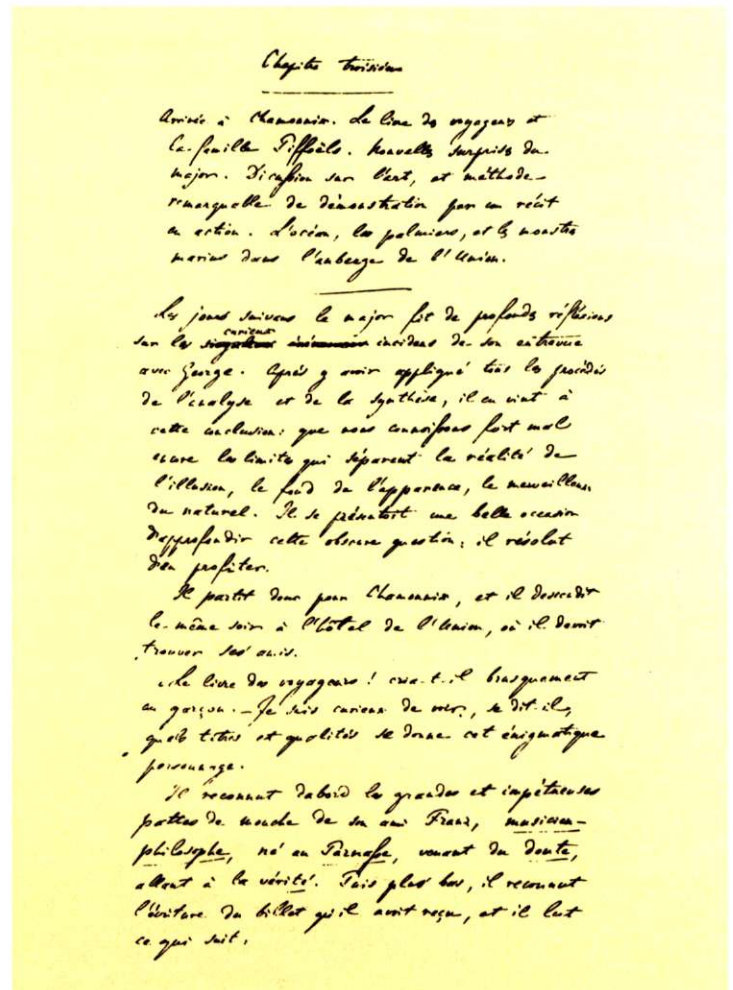 Chapitre troisième
Arrivée à Chamounix. Le livre des voyageurs et
la famille Piffoëls. Nouvelles surprises du
major. Dicussion sur l'art, et méthode
remarquable de démonstration par un récit
en action. L'océan, les palmiers, et les monstres
marins dans l'auberge de l'Union.
Les jours suivans le major fit de profondes réflexions
sur les curieux incidens de son entrevue
avec George. Après y avoir appliqué tous les procédés
de l'analyse et de la synthèse, il en vint à
cette conclusion: que nous connaissons fort mal
encore les limites qui séparent la réalité de
l'illusion, le fond de l'apparence, le merveilleux
du naturel. Il se présentait une belle occasion
d'approfondir cette obscure question; il résolut
d'en profiter.
Il partit donc pour Chamounix, et il descendit
le même soir à l'hôtel de l'Union, où il devait
trouver ses amis.
«Le livre des voyageurs! cria-t-il brusquement
au garçon. – Je suis curieux de voir, se dit-il,
quels titres et qualités se donne cet énigmatique
personnage.
Il reconnut dabord les grandes et impétueuses
pattes de mouche de son ami Franz, musicien-
philosophe, né au Parnasse, venant du doute,
allant à la vérité. Puis plus bas, il reconnut
l'écriture du billet qu'il avait reçu, et il lut
ce qui suit.